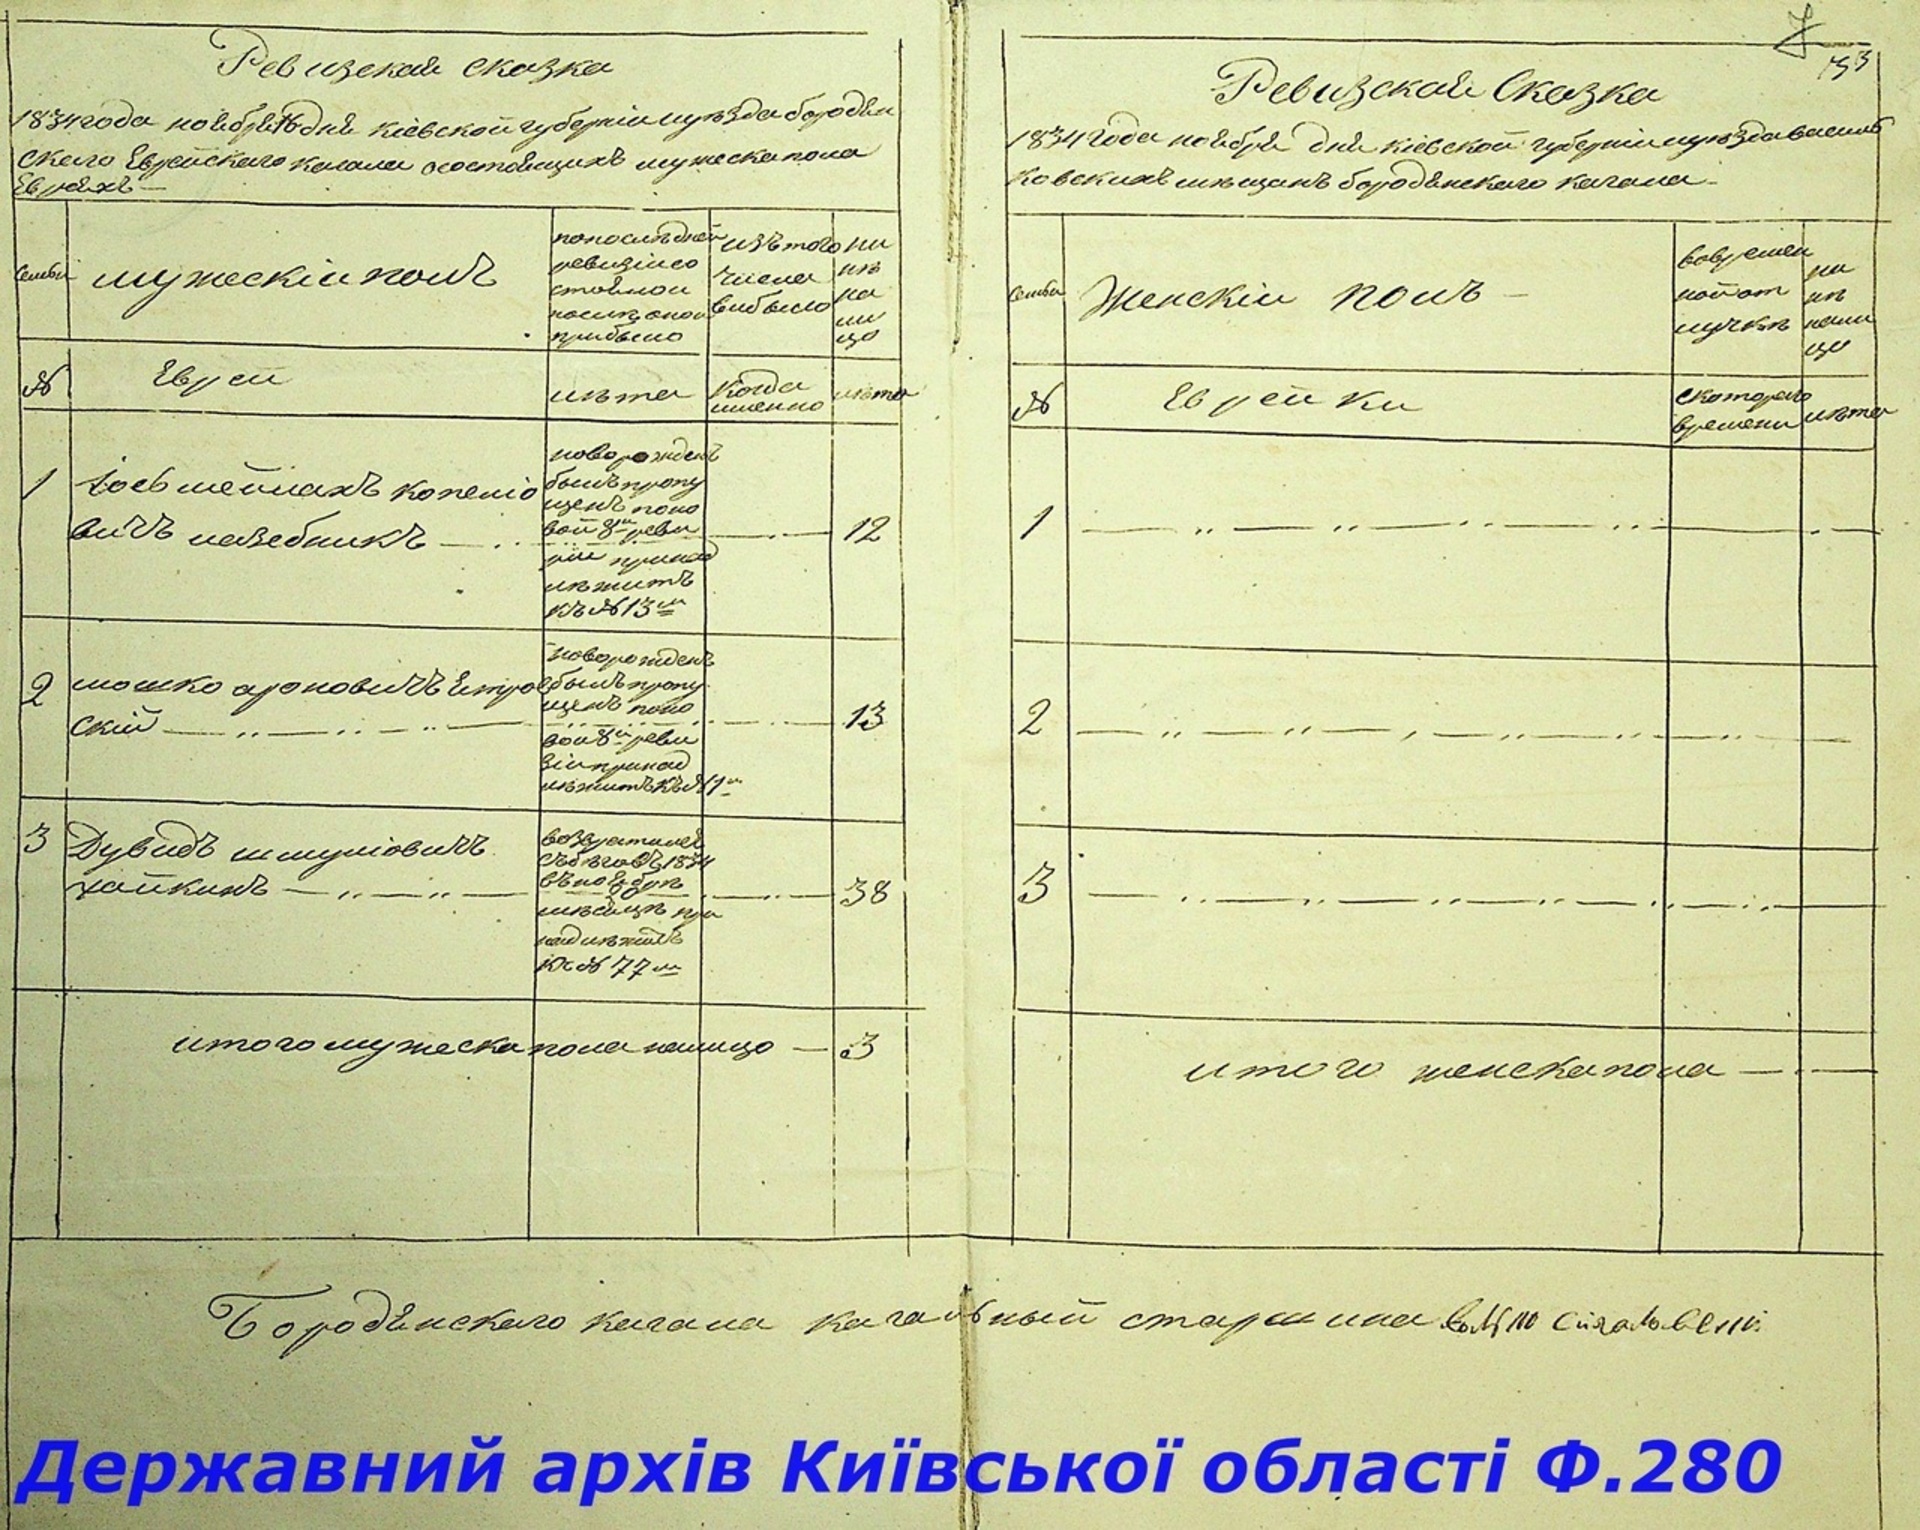 Ревизская сказка
1834 года ноября 16 дня Кіевской губерніи уезда бородян
ского Еврейского кагала осостоящихъ мужеска пола
Евреяхъ —
Семьи
мужескіи полъ
попоследней
ревизіи со
стояло и
после оной
прибыло
изътого
числа
выбыло
ны
не
на
ли
цо
№
Евреи
лета
Когда
именно
лета
1
Іось
вичъ
новорожденъ
былъ пропу
щенъ попо
вой 8й реви
зіи принад
лежитъ
къ № 13му
12
2
мошко ароновичъ
скій
новорожденъ
былъ пропу
щенъ попо
вой 8й реви
зіи принад
лежитъ къ №
13
3
Дувидъ шмуліовичъ
хайкинъ
возвратился
съ беговъ 1834
въ ноябре
месяце при
надлежитъ
къ № 77му
38
итого мужеска пола налицо — 3
33
Ревизская Сказка
1834 года ноября дня Кіевской губерніи уезда василь
ковскихъ мещанъ бородянского кагала
Семьи
Женскіи полъ —
вовремен
ной от
лучке
ны
не
нали
цо
№
Еврейки
скоторого
времени
лета
1
2
3
итого женска пола
Бородянского кагала кагальный старшина
Державний архів Київської області Ф.280